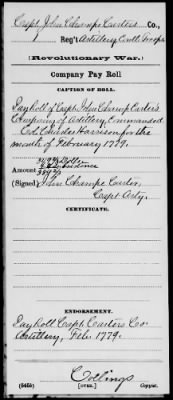 Capt. John Champe Carter's Co.,
Reg't Artillery, Contl. Troops
(Revolutionary War.)
Company Pay Roll
CAPTION OF ROLL.
Pay Roll of Capt. John Champ Carter's
Company of Artillery, Commanded
Col. Charles Harrison for the
month of February 1779.
Amount
(Signed) John Champe Carter,
Capt Arty.
CERTIFICATE.
ENDORSEMENT.
Pay Roll Capt. Carters Co
Artillery, Feb. 1779.
Collings
(545b) [OVER.] Copyist.